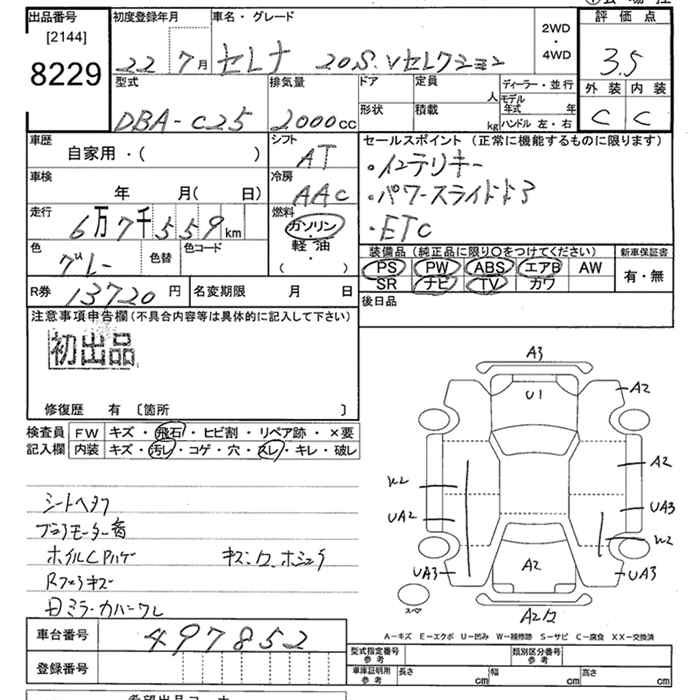 出品番号
[2144]
8229
初度登録年月
22 7月
車名・グレード
セレナ 20S Vセレクション
2WD
・
4WD
評価点
3.5
外装 内装
C C
型式
DBA-C25
排気量
2000cc
ドア
形状
定員
人
積載
kg
ディーラー・並行
モデル年式 年
ハンドル 左・右
車歴
自家用・( )
シフト
AT
車検
年 月( 日)
冷房
AAC
走行
6万7千559km
燃料
ガソリン
・
軽油
・
( )
色
グレー
色替
色コード
R券 13720円
名変期限 月 日
セールスポイント(正常に機能するものに限ります)
・インテリキー
・パワースライドドア
・ETC
装備品(純正品に限り○をつけてください)
PS PW ABS エアB AW
SR ナビ TV カワ
新車保証書
有・無
後日品
注意事項申告欄(不具合内容等は具体的に記入して下さい)
初出品
修復歴 有 〔箇所 〕
検査員記入欄
FW キズ・飛石・ヒビ割・リペア跡・×要
内装 キズ・汚レ・コゲ・穴・スレ・キレ・破レ
シートヘタフ
ブロアモーター音
ホイルCPハゲ キズ・ワ、ホシュウ
Rフェラキズ
日ミラーカバーワレ
A3
U1
A2
A2
W2
UA2
UA3
W2
UA3
A2
UA3
スペア
A2ワ
A-キズ E-エクボ U-凹み W-補修跡 S-サビ C-腐食 XX-交換済
車台番号 497852
登録番号
型式指定番号
参考
類別区分番号
参考
車庫証明用
参考
長さ cm
幅 cm
高さ cm